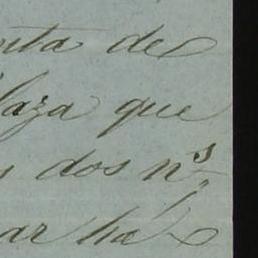 nta de
laza que
dos n.s
ar ha